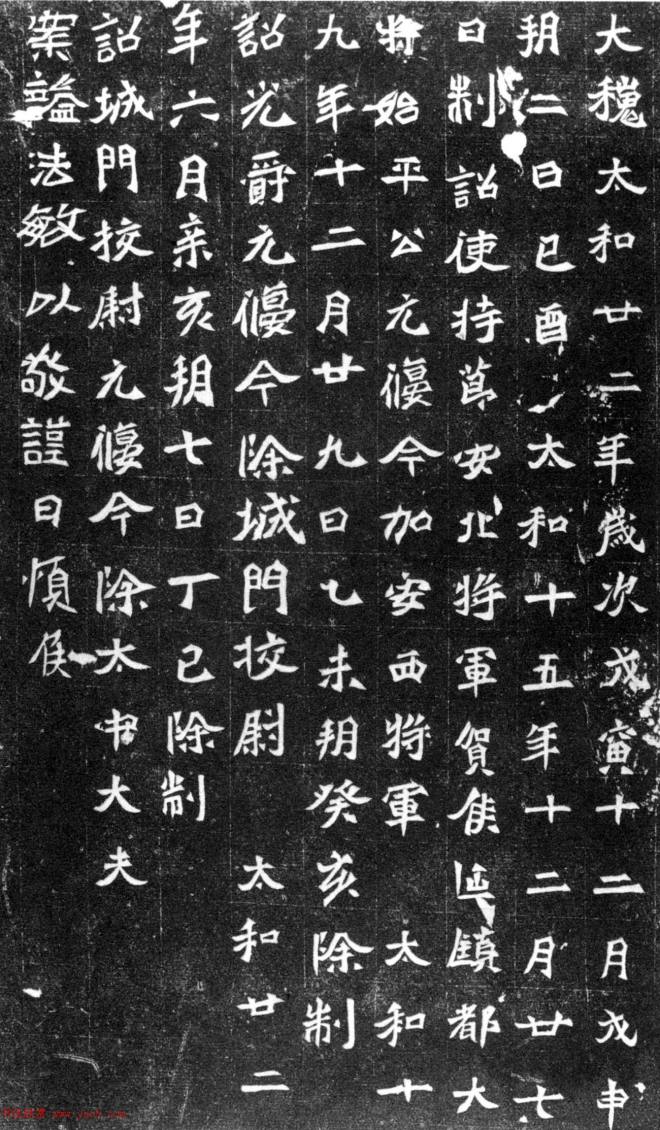 大魏太和廿二年歲次戊寅十二月戊申
朔二日己酉太和十五年十二月廿七
日制詔使持節安北將軍賀侯延鎮都大
將始平公元偃今加安西將軍 太和十
九年十二月廿九日乙未朔癸亥除制
詔光爵元偃今除城門校尉 太和廿二
年六月亲亥朔七日丁巳除制
詔城門校尉元偃今除太中大夫
案謚法敏以敬謹曰順侯
www.yac8.com